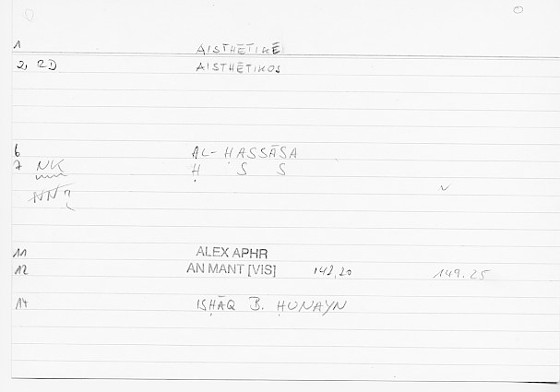 1 AISTHĒTIKĒ
2, 2D AISTHĒTIKOS
6 AL-ḤASSĀSA
7 NK Ḥ S S
NN?
11 ALEX APHR
12 AN MANT [VIS] 142,20 149.25
14 ISḤĀQ B. ḤUNAYN